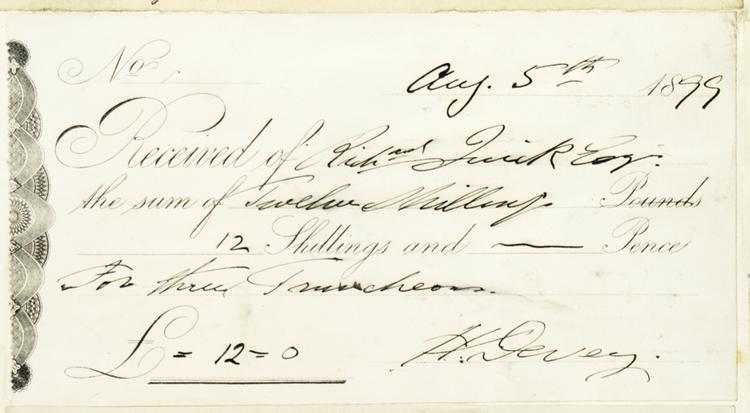 No.
Aug. 5th 1899
Received of Richard Quick Esq.
the sum of Twelve Shillings Pounds
12 Shillings and — Pence
For three Truncheons.
£ = 12 = 0
H. Devey.